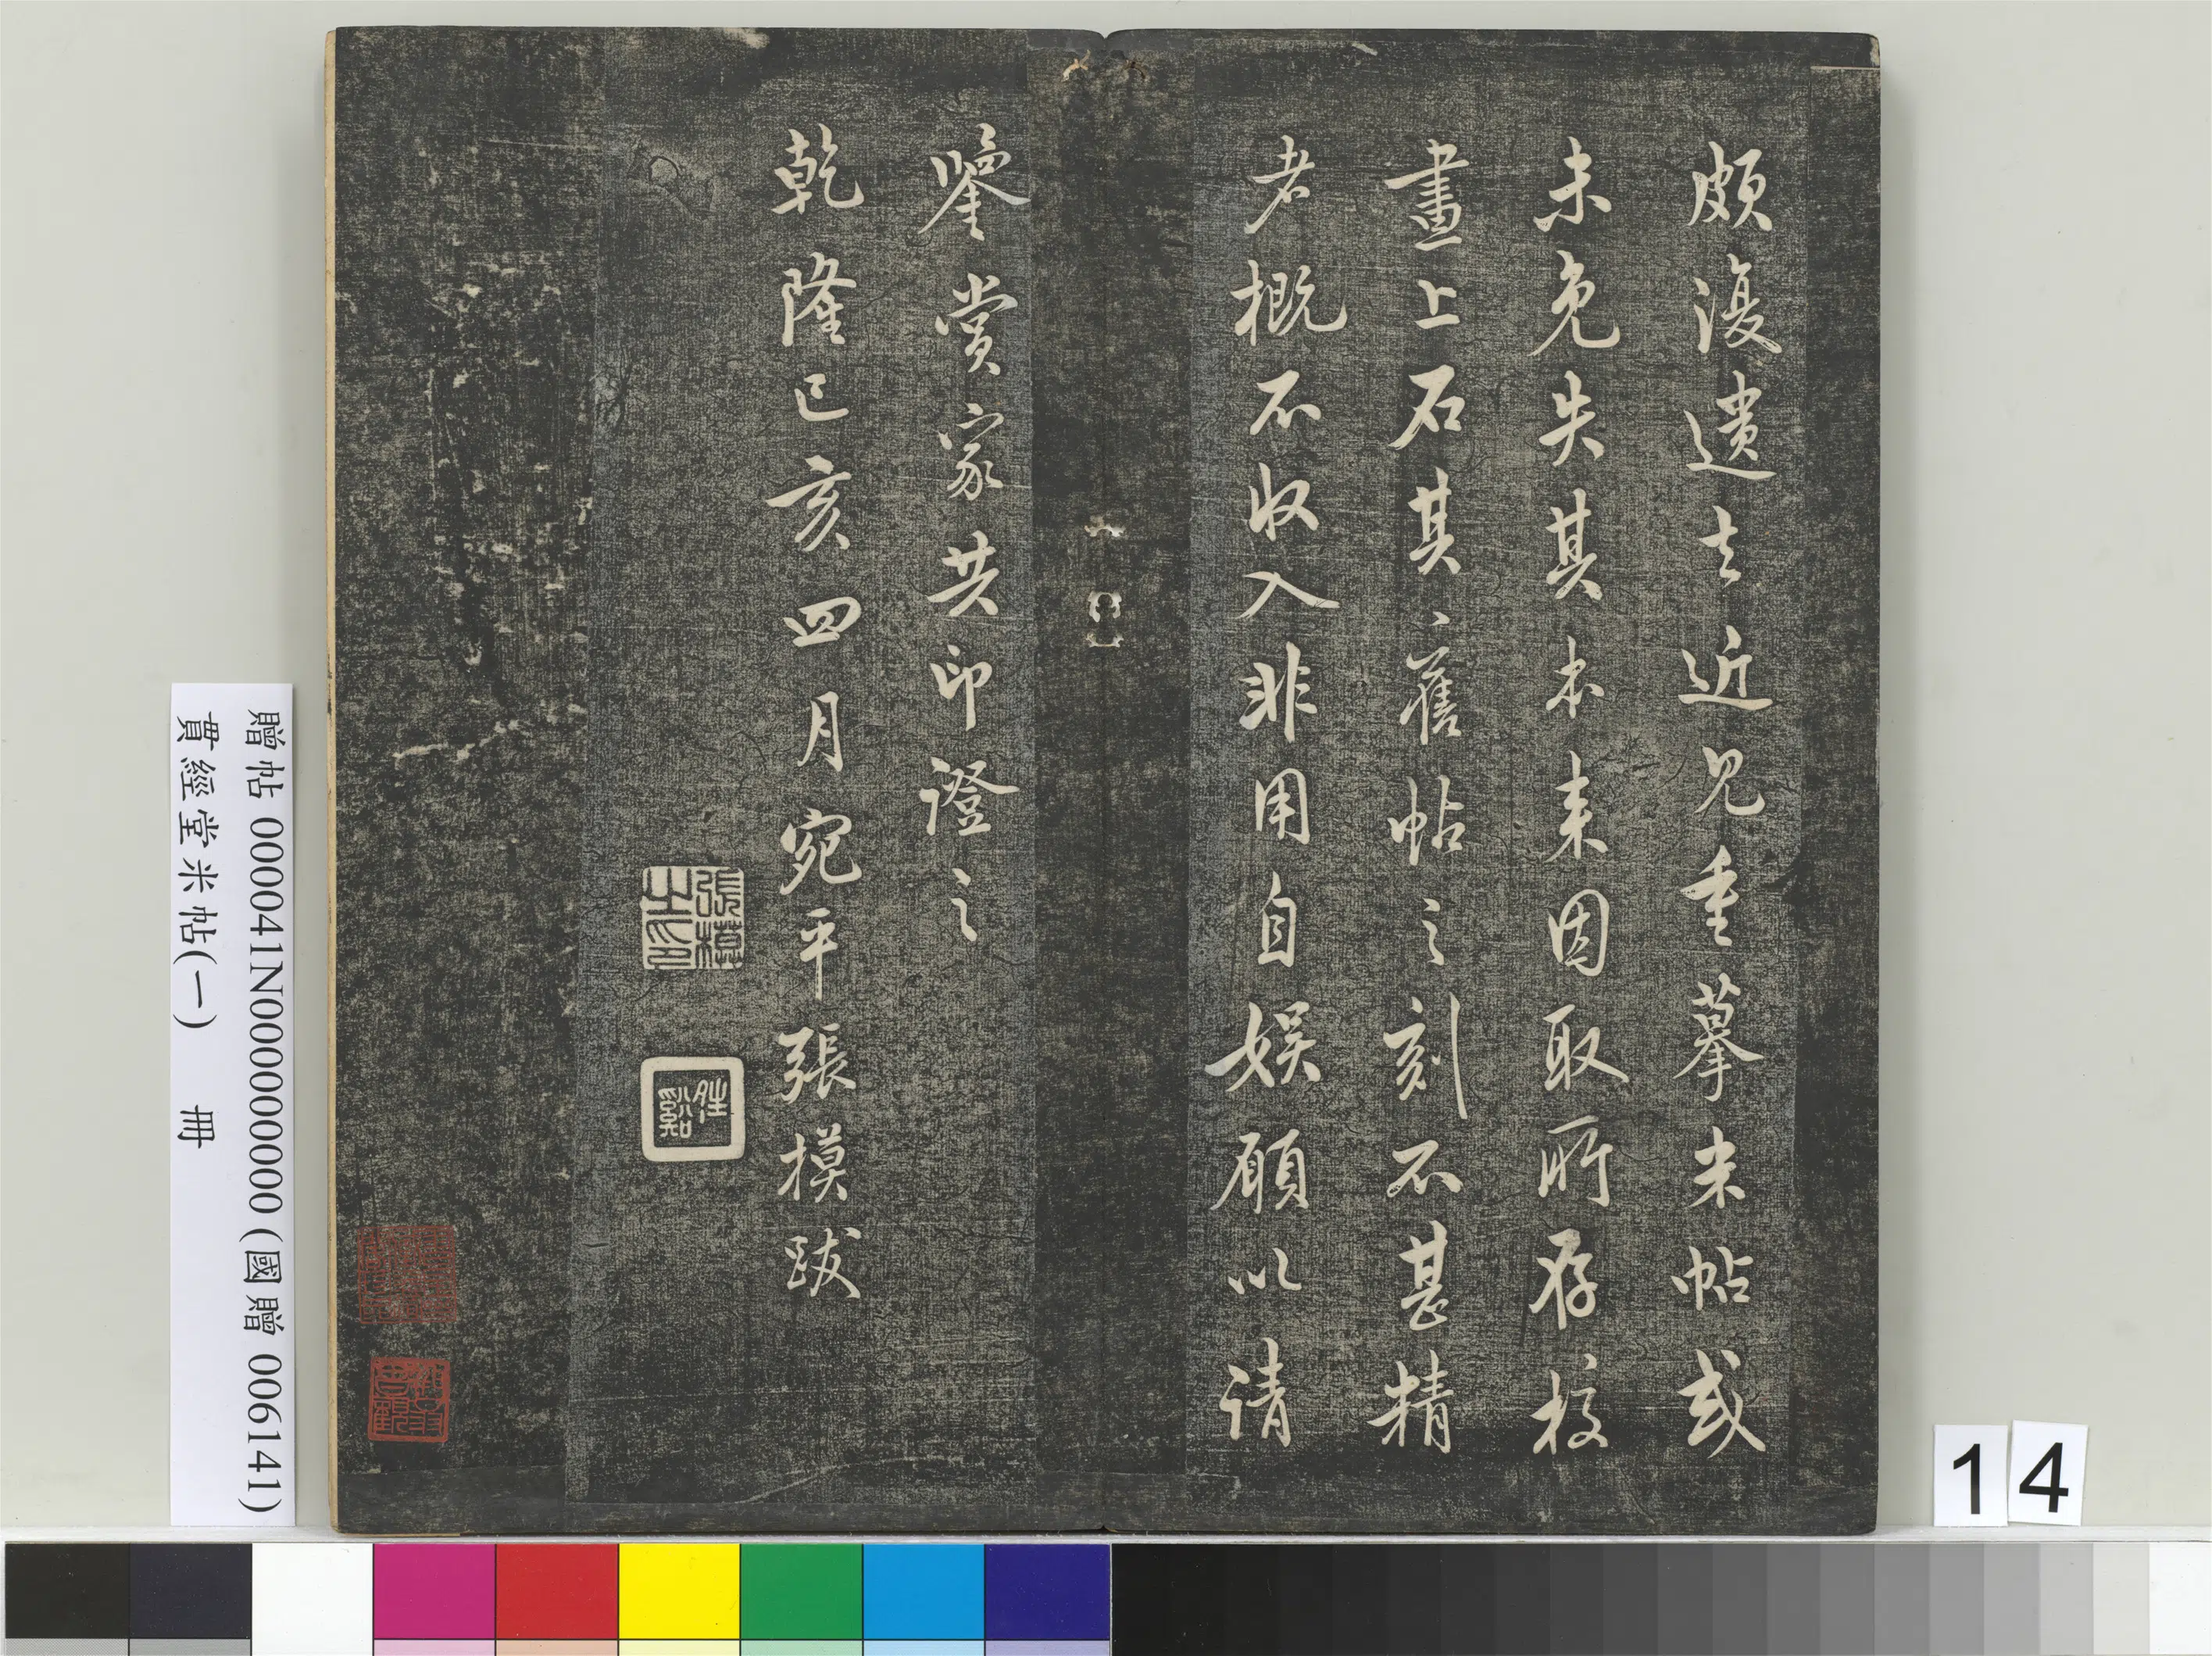 頗復遺去近見重摹米帖或
未免失其本来因取所存校
畫上石其舊帖之刻不甚精
者概不收入非用自娱願以请
鑒賞家共印證之
乾隆己亥四月宛平張模跋
張模之印
贈帖 000041N000000000 (國贈 006141)
貫經堂米帖(一) 冊
14